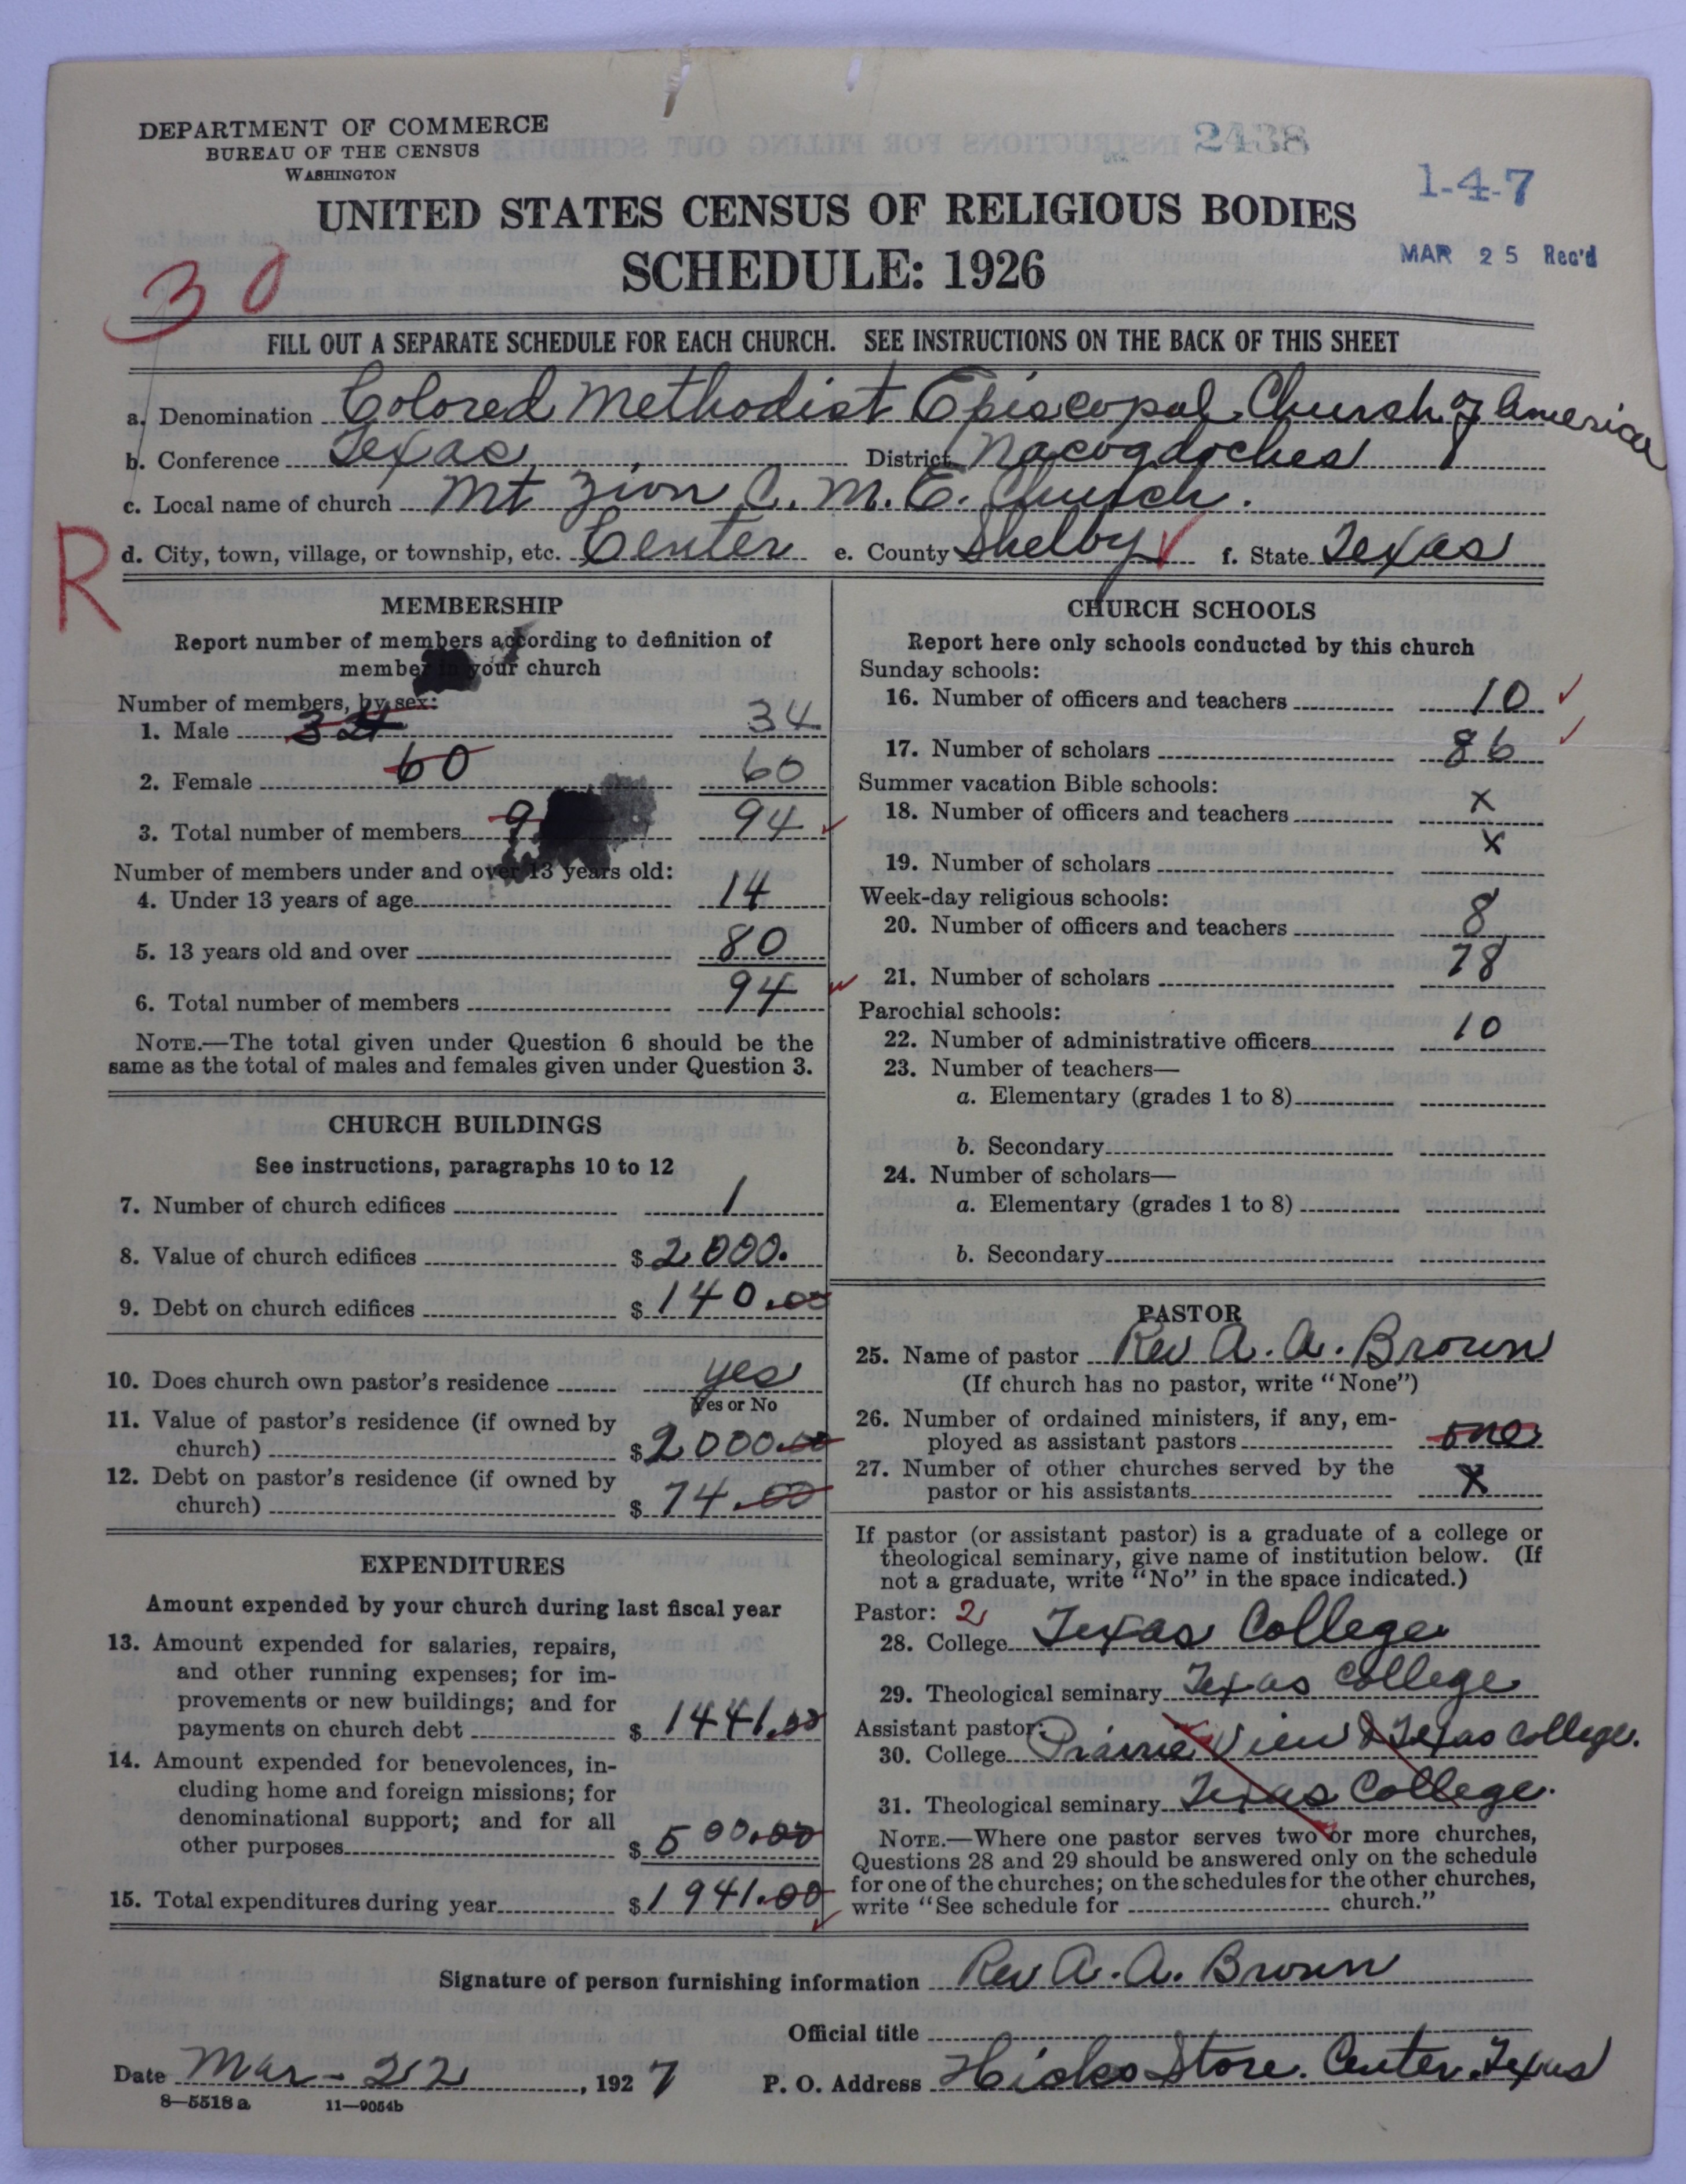 DEPARTMENT OF COMMERCE
BUREAU OF THE CENSUS
WASHINGTON
2438
1-4-7
UNITED STATES CENSUS OF RELIGIOUS BODIES
MAR 25 Rec'd
SCHEDULE: 1926
30
FILL OUT A SEPARATE SCHEDULE FOR EACH CHURCH. SEE INSTRUCTIONS ON THE BACK OF THIS SHEET
a. Denomination Colored Methodist Episcopal Church of America
b. Conference Texas District Nacogdoches
c. Local name of church Mt Zion C. M. E. Church.
R
d. City, town, village, or township, etc. Center e. County Shelby f. State Texas
MEMBERSHIP
Report number of members according to definition of
member in your church
Number of members, by sex:
1. Male 34 34
2. Female 60 60
3. Total number of members 9 94
Number of members under and over 13 years old:
4. Under 13 years of age 14
5. 13 years old and over 80
6. Total number of members 94
NOTE.—The total given under Question 6 should be the
same as the total of males and females given under Question 3.
CHURCH BUILDINGS
See instructions, paragraphs 10 to 12
7. Number of church edifices 1
8. Value of church edifices $2000.
9. Debt on church edifices $140.00
10. Does church own pastor's residence yes
Yes or No
11. Value of pastor's residence (if owned by
church) $2000.00
12. Debt on pastor's residence (if owned by
church) $74.00
EXPENDITURES
Amount expended by your church during last fiscal year
13. Amount expended for salaries, repairs,
and other running expenses; for im-
provements or new buildings; and for
payments on church debt $1441.00
14. Amount expended for benevolences, in-
cluding home and foreign missions; for
denominational support; and for all
other purposes $500.00
15. Total expenditures during year $1941.00
CHURCH SCHOOLS
Report here only schools conducted by this church
Sunday schools:
16. Number of officers and teachers 10
17. Number of scholars 86
Summer vacation Bible schools:
18. Number of officers and teachers x
19. Number of scholars x
Week-day religious schools:
20. Number of officers and teachers 8
21. Number of scholars 78
Parochial schools:
22. Number of administrative officers 10
23. Number of teachers—
a. Elementary (grades 1 to 8)
b. Secondary
24. Number of scholars—
a. Elementary (grades 1 to 8)
b. Secondary
PASTOR
25. Name of pastor Rev A. A. Brown
(If church has no pastor, write "None")
26. Number of ordained ministers, if any, em-
ployed as assistant pastors one
27. Number of other churches served by the
pastor or his assistants X
If pastor (or assistant pastor) is a graduate of a college or
theological seminary, give name of institution below. (If
not a graduate, write "No" in the space indicated.)
Pastor: 2
28. College Texas College
29. Theological seminary Texas College
Assistant pastor:
30. College Prairie View & Texas College.
31. Theological seminary Texas College.
NOTE.—Where one pastor serves two or more churches,
Questions 28 and 29 should be answered only on the schedule
for one of the churches; on the schedules for the other churches,
write "See schedule for church."
Signature of person furnishing information Rev A. A. Brown
Official title
Date Mar - 22, 1927 P. O. Address Hicks Store. Center. Texas
8—5518a 11—9054b